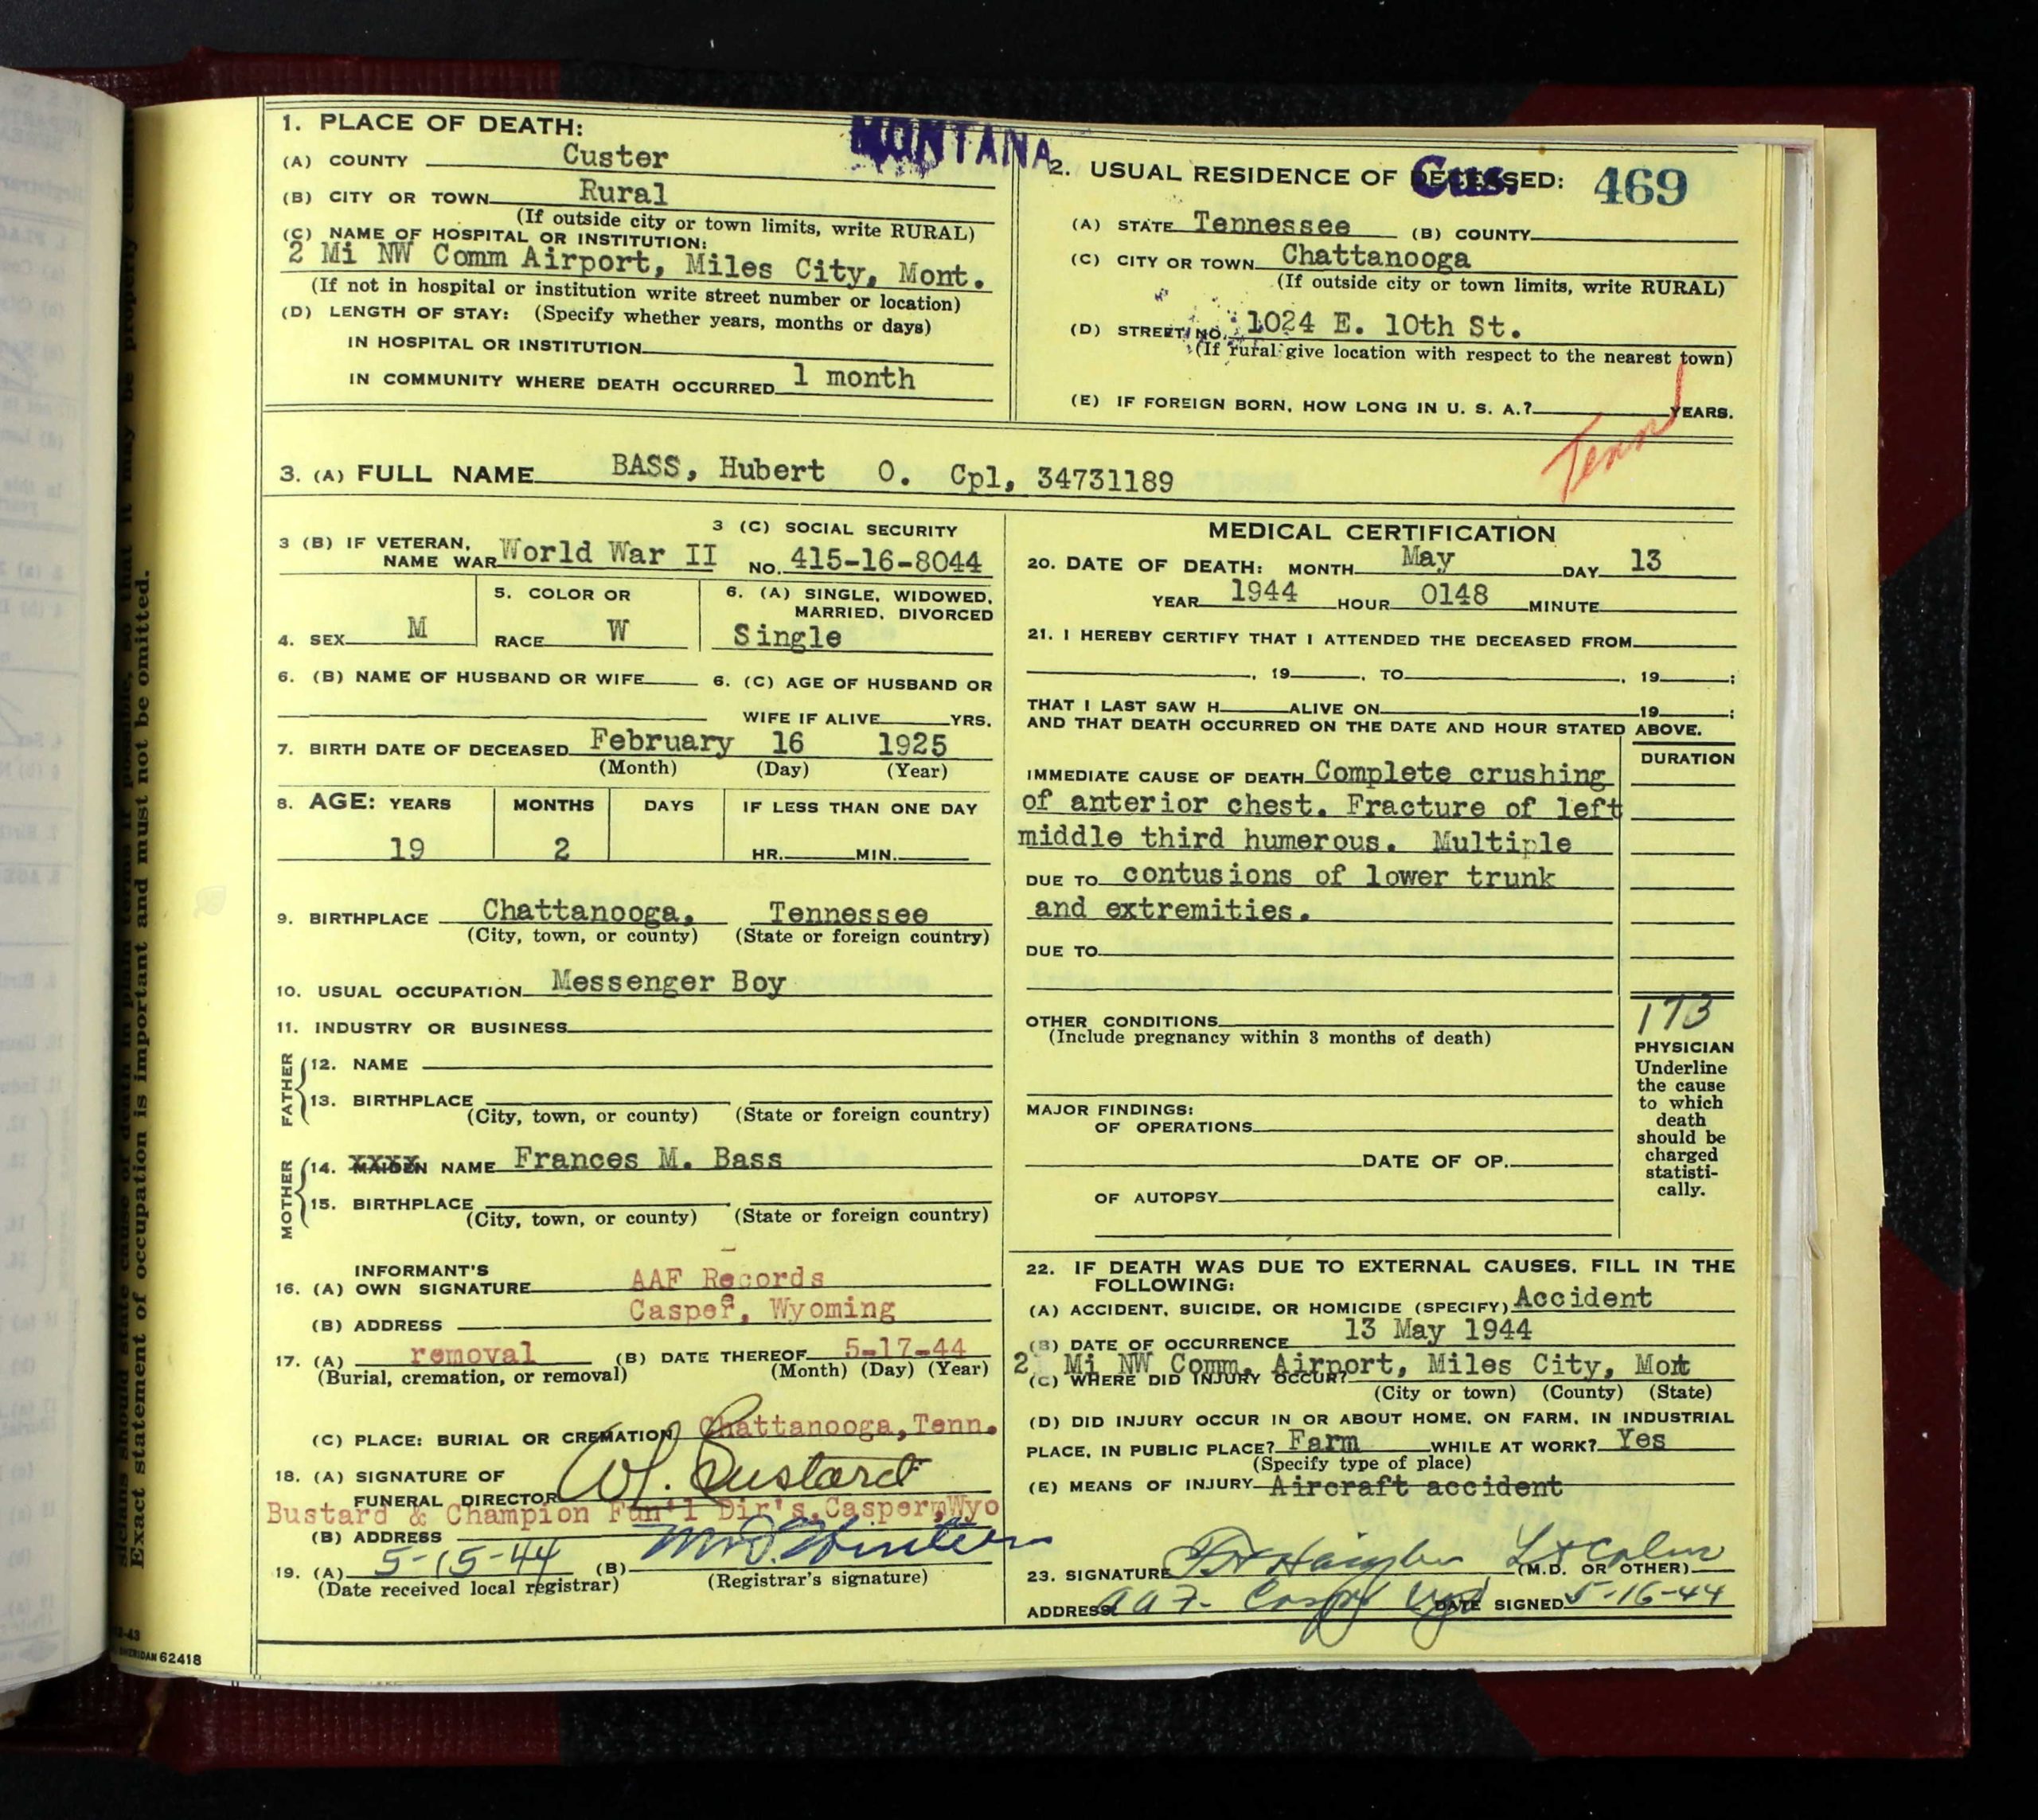 MONTANA
Cus. 469
1. PLACE OF DEATH:
(A) COUNTY Custer
(B) CITY OR TOWN Rural
(If outside city or town limits, write RURAL)
(C) NAME OF HOSPITAL OR INSTITUTION:
2 Mi NW Comm Airport, Miles City, Mont.
(If not in hospital or institution write street number or location)
(D) LENGTH OF STAY: (Specify whether years, months or days)
IN HOSPITAL OR INSTITUTION
IN COMMUNITY WHERE DEATH OCCURRED 1 month
2. USUAL RESIDENCE OF DECEASED:
(A) STATE Tennessee (B) COUNTY
(C) CITY OR TOWN Chattanooga
(If outside city or town limits, write RURAL)
(D) STREET NO. 1024 E. 10th St.
(If rural give location with respect to the nearest town)
(E) IF FOREIGN BORN, HOW LONG IN U. S. A.? YEARS.
Tenn
3. (A) FULL NAME BASS, Hubert O. Cpl, 34731189
3 (B) IF VETERAN,
NAME WAR World War II
3 (C) SOCIAL SECURITY
NO. 415-16-8044
4. SEX M
5. COLOR OR
RACE W
6. (A) SINGLE, WIDOWED,
MARRIED, DIVORCED
Single
6. (B) NAME OF HUSBAND OR WIFE
6. (C) AGE OF HUSBAND OR
WIFE IF ALIVE YRS.
7. BIRTH DATE OF DECEASED February 16 1925
(Month) (Day) (Year)
8. AGE: YEARS MONTHS DAYS IF LESS THAN ONE DAY
19 2 HR. MIN.
9. BIRTHPLACE Chattanooga, Tennessee
(City, town, or county) (State or foreign country)
10. USUAL OCCUPATION Messenger Boy
11. INDUSTRY OR BUSINESS
FATHER
12. NAME
13. BIRTHPLACE
(City, town, or county) (State or foreign country)
MOTHER
14. MAIDEN NAME Frances M. Bass
15. BIRTHPLACE
(City, town, or county) (State or foreign country)
INFORMANT'S
16. (A) OWN SIGNATURE AAF Records
(B) ADDRESS Casper, Wyoming
17. (A) removal (B) DATE THEREOF 5-17-44
(Burial, cremation, or removal) (Month) (Day) (Year)
(C) PLACE: BURIAL OR CREMATION Chattanooga, Tenn.
18. (A) SIGNATURE OF
FUNERAL DIRECTOR W. Bustard
Bustard & Champion Fun'l Dir's, Casper, Wyo
(B) ADDRESS
19. (A) 5-15-44 (B)
(Date received local registrar) (Registrar's signature)
MEDICAL CERTIFICATION
20. DATE OF DEATH: MONTH May DAY 13
YEAR 1944 HOUR 0148 MINUTE
21. I HEREBY CERTIFY THAT I ATTENDED THE DECEASED FROM
, 19 , TO , 19 ;
THAT I LAST SAW H ALIVE ON 19 ;
AND THAT DEATH OCCURRED ON THE DATE AND HOUR STATED ABOVE.
DURATION
IMMEDIATE CAUSE OF DEATH Complete crushing
of anterior chest. Fracture of left
middle third humerous. Multiple
DUE TO contusions of lower trunk
and extremities.
DUE TO
OTHER CONDITIONS
(Include pregnancy within 3 months of death)
MAJOR FINDINGS:
OF OPERATIONS
DATE OF OP.
OF AUTOPSY
173
PHYSICIAN
Underline
the cause
to which
death
should be
charged
statisti-
cally.
22. IF DEATH WAS DUE TO EXTERNAL CAUSES, FILL IN THE
FOLLOWING:
(A) ACCIDENT, SUICIDE, OR HOMICIDE (SPECIFY) Accident
(B) DATE OF OCCURRENCE 13 May 1944
2 Mi NW Comm. Airport, Miles City, Mont
(C) WHERE DID INJURY OCCUR?
(City or town) (County) (State)
(D) DID INJURY OCCUR IN OR ABOUT HOME, ON FARM, IN INDUSTRIAL
PLACE, IN PUBLIC PLACE? Farm WHILE AT WORK? Yes
(Specify type of place)
(E) MEANS OF INJURY Aircraft accident
23. SIGNATURE (M.D. OR OTHER)
ADDRESS DATE SIGNED 5-16-44
Exact statement of occupation is important and must not be omitted.
62418